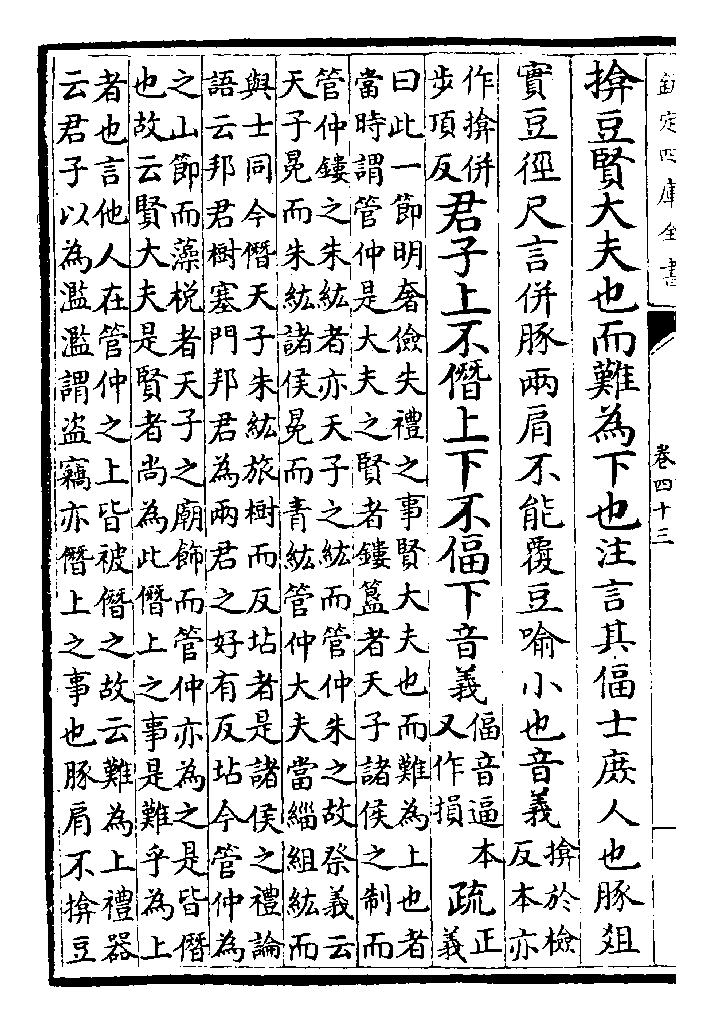 欽定四庫全書 卷四十三
揜豆賢大夫也而難為下也注言其偪士庶人也豚俎
實豆徑尺言併豚兩肩不能覆豆喻小也音義揜於檢
反本亦
作揜併
步頂反君子上不僭上下不偪下音義偪音逼本
又作損疏正
義
曰此一節明奢儉失禮之事賢大夫也而難為上也者
當時謂管仲是大夫之賢者鏤簋者天子諸侯之制而
管仲鏤之朱紘者亦天子之紘而管仲朱之故祭義云
天子冕而朱紘諸侯冕而青紘管仲大夫當緇組紘而
與士同今僭天子朱紘旅樹而反坫者是諸侯之禮論
語云邦君樹塞門邦君為兩君之好有反坫今管仲為
之山節而藻梲者天子之廟飾而管仲亦為之是皆僭
也故云賢大夫是賢者尚為此僭上之事是難乎為上
者也言他人在管仲之上皆被僭之故云難為上禮器
云君子以為濫濫謂盜竊亦僭上之事也豚肩不揜豆